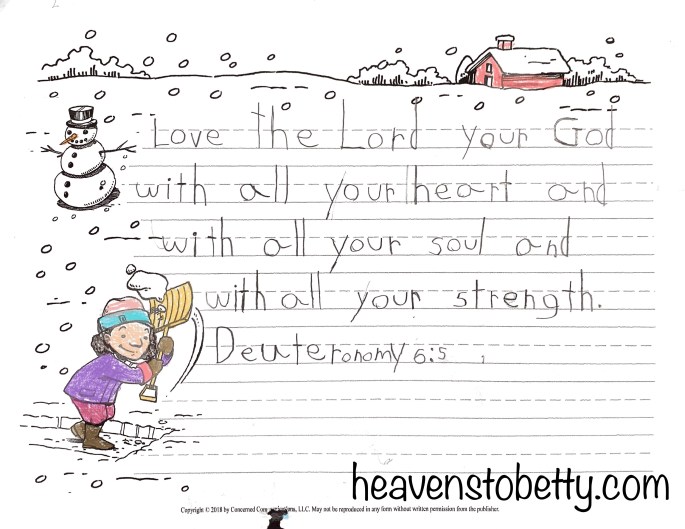 Love the Lord your God
with all your heart and
with all your soul and
with all your strength.
Deuteronomy 6:5
heavenstobetty.com
Copyright © 2018 by Concerned Communications, LLC. May not be reproduced in any form without written permission from the publisher.